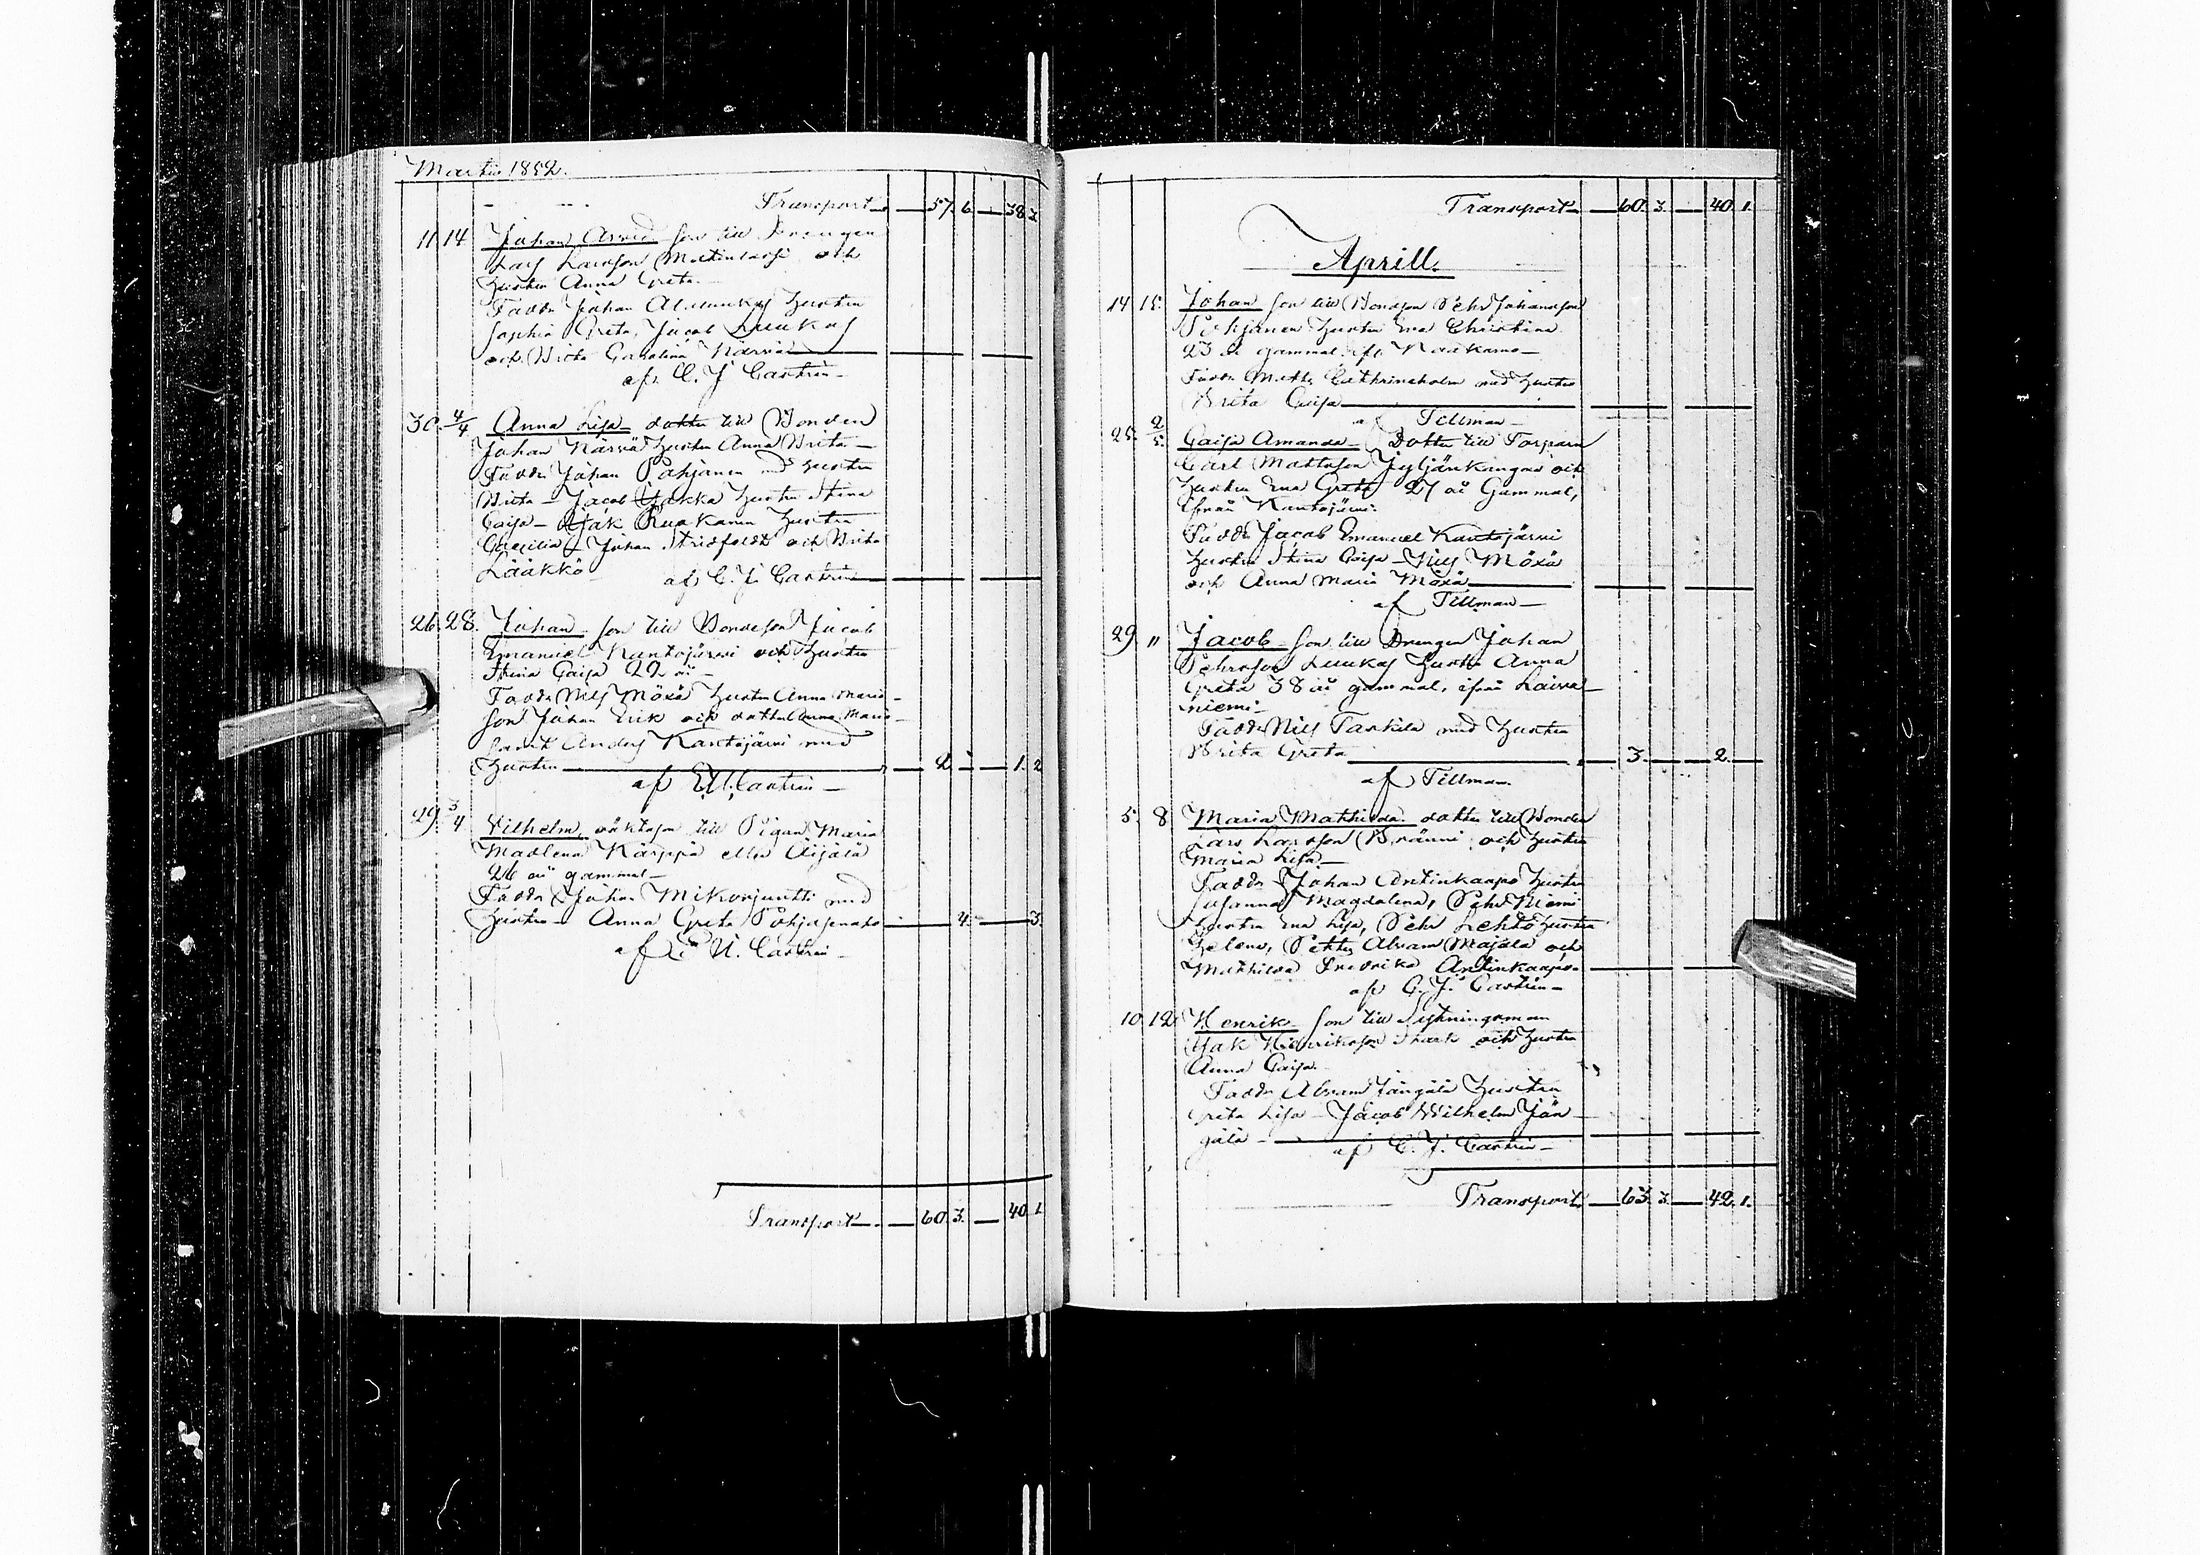 Martii 1852.
Transport — 57. 6. — 38. 3.
11. 14 Johan Arvid son till Drengen
Lars Larsson Mattinlassi och
Hustru Anna Greta.
Faddr Johan Alaluukas Hustru
Sophia Greta, Jacob Luukas
och Brita Carolina Närvä
af C. J. Castrén
30. 4/4 Anna Lisa dotter till Bonden
Johan Närvä Hustru Anna Brita
Faddr Johan Pahjanen med Hustru
Brita – Jacob Hustru Stina
Caisa – Isak Ruokanen Hustru
Caecilia – Johan Stridfeldt och Brita
Lääkkö af C. J. Castrén
26. 28. Johan son till Bondeson Jacob
Emanuel Kantojärvi och Hustru
Stina Caisa 22 år
Faddr Nils Möxä Hustru Anna Maria
son Johan Erik och dotter Anna Maria
samt Anders Kantojärvi med
Hustru — 2. — 1. 2
af E. U. Castrén
29. 3/4 Vilhelm, oäkta son till Pigan Maria
Madlena Kärppä eller Äijälä
26 år gammal
Faddr Johan Mikonjuntti med
Hustru – Anna Greta — 4. — 3.
af E. U. Castrén
Transport — 60. 3. — 40. 1.
Transport — 60. 3. — 40. 1.
Aprill.
14 15. Johan son till Bondson Pehr Johansson
Hustru Eva Christina
23 år gammal ifr. Kaakamo
Faddr Matts Cathrineholm med Hustru
Brita Caisa
af Tillman
25. 2/5. Caisa Amanda – Dotter till Torparn
Carl Mattsson Jyljänkangas och
Hustru Eva Greta 27 år Gammal,
ifrån Kantojärvi.
Faddr Jacob Emanuel Kantojärvi
Hustru Stina Caisa – Nils Möxä
och Anna Maria Möxä
af Tillman
29. " Jacob son till Drengen Johan
Pehrsson Luukas Hustru Anna
Greta 38 år gammal, ifrån Laiva-
niemi
Faddr Nils Tarkila med Hustru
Brita Greta — 3. — 2.
af Tillman.
5. 8. Maria Mathilda dotter till Bonden
Lars Larsson Bränni och Hustru
Maria Lisa
Faddr Johan Antinkaapo Hustru
Susanna Magdalena, Pehr Niemi
Hustru Eva Lisa, Pehr Lehto Hustru
Helena, Petter Abram Majala och
Mathilda Fredrika Antinkaapo
af C. J. Castrén
10. 12. Henrik son till
Isak Henriksson Stark och Hustru
Anna Caisa.
Faddr Abram Jängälä Hustru
Greta Lisa – Jacob Wilhelm Jän-
gälä
af C. J. Castrén
Transport — 63. 3. — 42. 1.